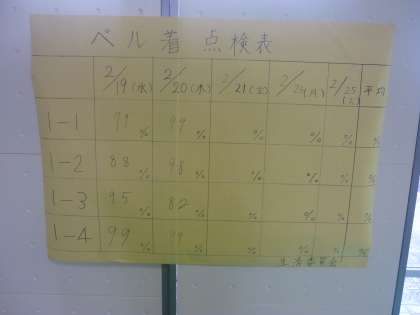 ベル着点検表
2/19(水) 2/20(木) 2/21(金) 2/24(月) 2/25(火) 平均
1-1 71% 99% % % % %
1-2 88% 98% % % % %
1-3 95% 82% % % % %
1-4 99% 99% % % % %
生活委員会